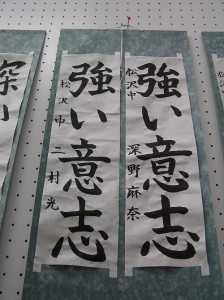 強い意志
松沢中
深野麻奈
強い意志
松沢中
二村光
深い